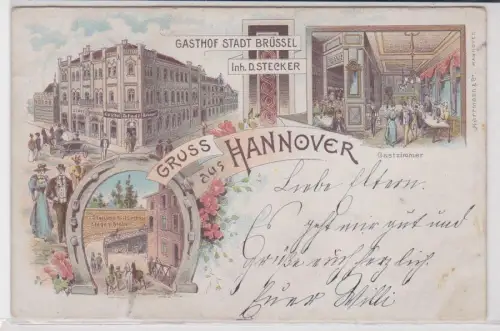 GASTHOF STADT BRÜSSEL
Inh. D. STECKER
Gastzimmer
GRUSS
aus HANNOVER
Liebe Eltern.
Es geht mir gut und
Grüße euch herzlich.
Euer Willi